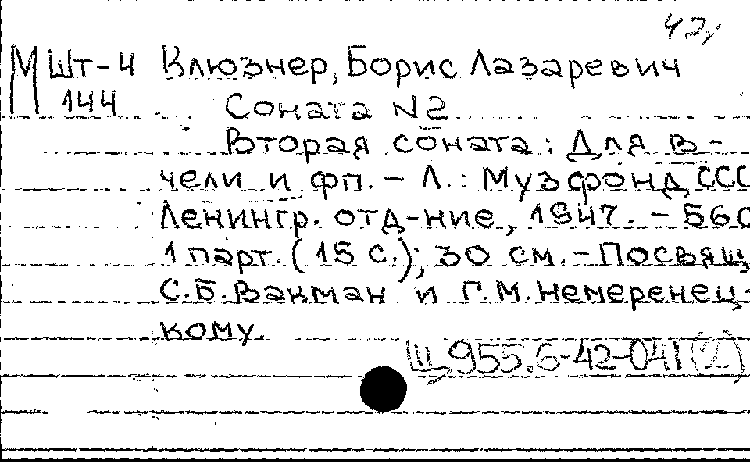 42,
М Шт-4 Клюзнер, Борис Лазаревич
144 Соната N2
Вторая соната: Для в-
чели и фп. - Л.: Музфонд ССС
Ленингр. отд-ние, 1947. - 560
1 парт. (15 с.); 30 см. - Посвящ
С.Б. Вакман и Г.М. Немеренец-
кому.
Щ955.6-42-041(2)